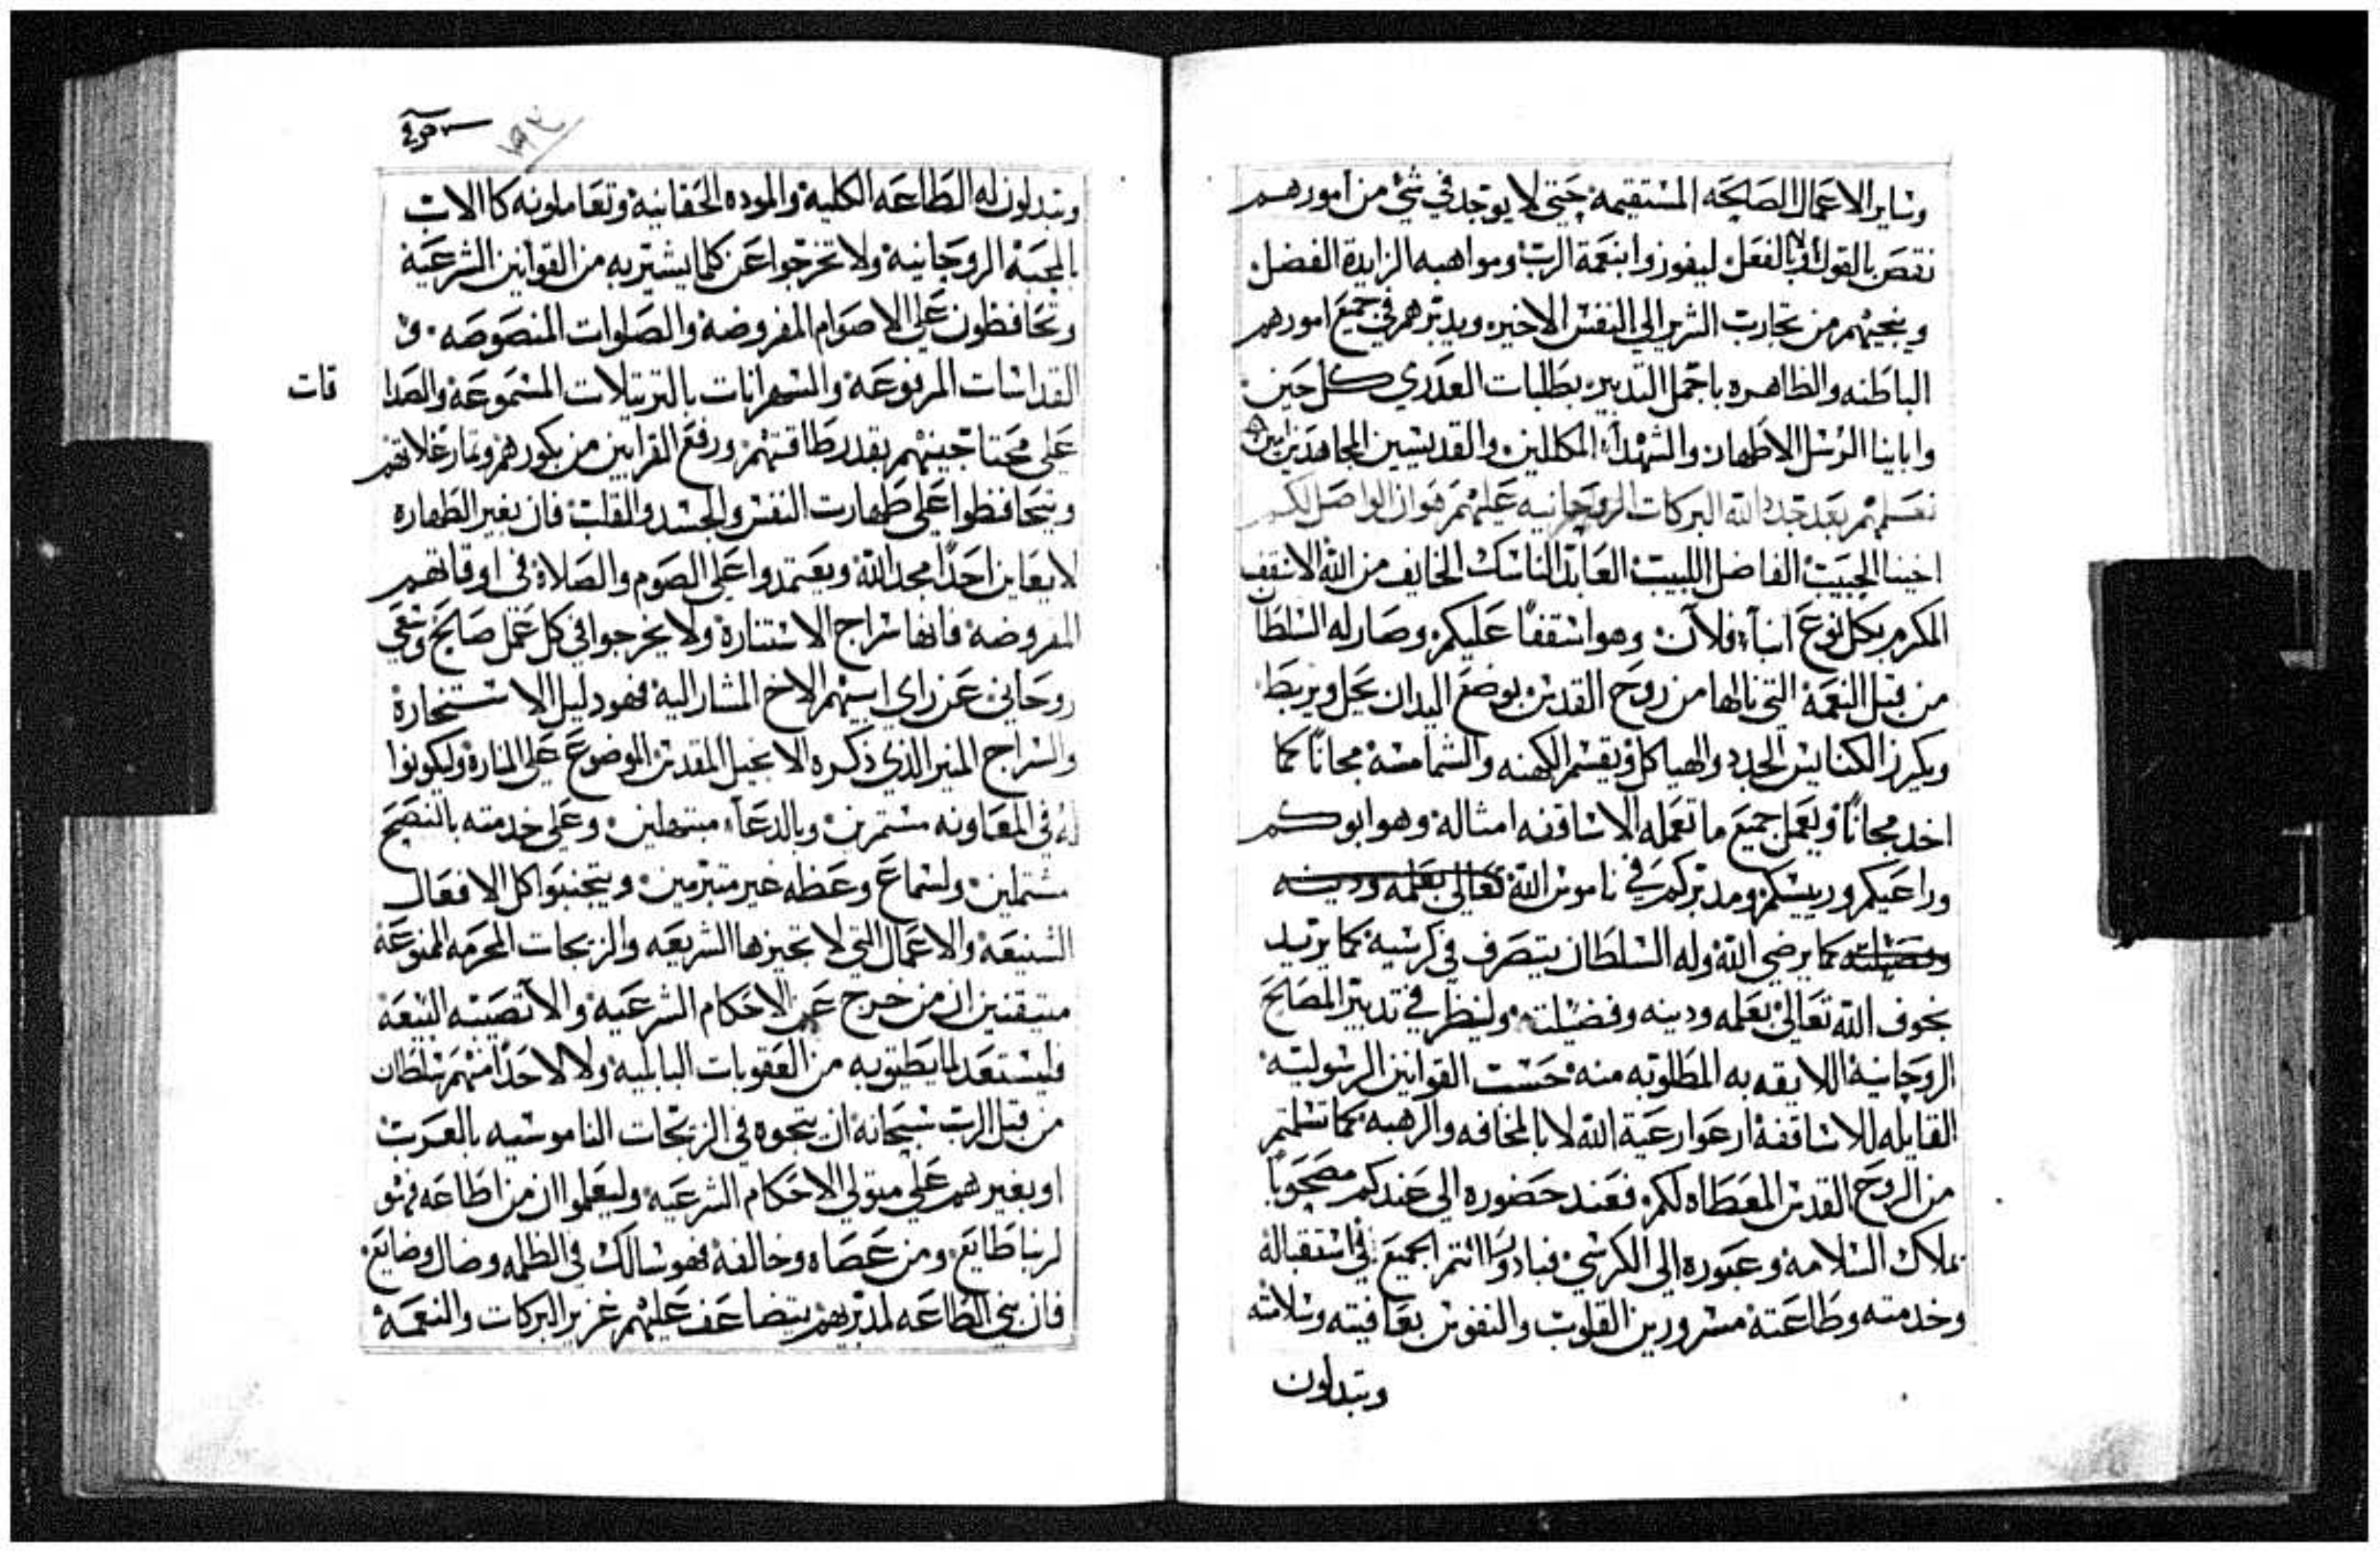 وساير الاعمال الصالحه المستقيمة حتي لا يوجد في شي من امورهم
نقص بالقول ولا بالفعل ليفوزوا بنعمة الرب ومواهبه الزايدة الفضل
وينجيهم من تجارب الشرير الي النفس الاخير ويدبرهم في جميع امورهم
الباطنه والظاهره باجمل التدبير بطلبات العدري كل حين
وابابنا الرسل الاطهار والشهدآء المكللين والقديسين المجاهدين امين
نعلمهم بعد تجدد الله البركات الروحانيه عليهم هوان الواصل لكم
اخينا الحبيب الفاضل اللبيب العابد الناسك الخايف من الله الاسقف
المكرم بكل نوع انبآ فلان وهو اسقفا عليكم وصار له السلطان
من قبل النعمة التي نالها من روح القدس بوضع اليدان يحل ويربط
ويكرز الكنايس الجدد والهياكل ويقسم الكهنه والشمامسه مجانًا كما
اخد مجانًا ويعمل جميع ما تعمله الاساقفه امثاله وهو ابوكم
وراعيكم ورييسكم ومدبركم في ناموس الله تعالي بعلمه ودينه
وفضيلته كما يرضي الله وله السلطان يتصرف في كرسيه كما يريد
بخوف الله تعالي بعلمه ودينه وفضيلته ولينظر في تدبير المصالح
الروحانية اللايقه به المطلوبه منه حسب القوانين الرسوليه
القايله للاساقفة ارعوا رعية الله لا بالمخافه والرهبه كما تسلمتم
من الروح القدس المعطاه لكم فعند حضوره الي عندكم مصحوبًا
بملاك السلامه وعبوره الي الكرسي فبادروا انتم الجميع في استقباله
وخدمته وطاعته مسرورين القلوب والنفوس بعافيته وسلامته
وتبدلون
وتبدلون له الطاعه الكلية والموده الحقانية وتعاملونه كالاب
بالمحبة الروحانية ولا تخرجوا عن كلما يشير به من القوانين الشرعية
وتحافظون علي الاصوام المفروضة والصلوات المنصوصه و
القداسات المرفوعه والسهرانات بالترتيلات المسموعة والصدا
قات
علي محتاجينهم بقدر طاقتهم ورفع القرابين من بكورهم وثمار غلاتهم
ويتحافظوا علي طهارت النفس والجسد والقلب فان بغير الطهارة
لا يعاين احدًا مجد الله ويعتمدوا علي الصوم والصلاة في اوقاتهم
المفروضة فانها سراج الاستنارة ولا يخرجوا في كل عمل صالح وسعي
روحاني عن راي ابيهم الاخ المشار اليه فهو دليل الاستخارة
والسراج المنير الذي ذكره الانجيل المقدس الموضوع علي المنارة وليكونوا
له في المعاونه مستمرين وبالدعآء مبتهلين وعلي خدمته بالنصح
مشتملين ولسماع وعظه غير متبرمين ويتجنبوا كل الافعال
الشنيعة والاعمال التي لا تجيزها الشريعه والزيجات المحرمه الممنوعة
متيقنين ان من خرج عن الاحكام الشرعية والانصبه البيعة
فليستعد لما يطيق به من العقوبات البالميه ولا لاحدًا منهم سلطان
من قبل الرب سبحانه ان يتجوه في الزيجات الناموسيه بالعرب
او بغيرهم علي متولي الاحكام الشرعيه وليعلموا ان من اطاعه فهو
لربنا طايع ومن عصاه وخالفه فهو سالك في الظلمه وضال وضايع
فان بني الطاعه لمدبرهم يتضاعف عليهم غزير البركات والنعمة